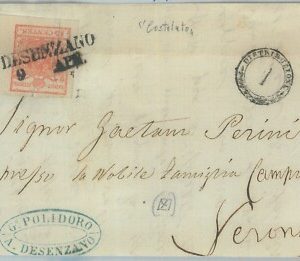 "Costolato"
DESENZANO
9 APR.
DISTRIBUZIONE
1
Signor Gaetano Perini
presso la Nobile Famiglia Campo
Verona
G. POLIDORO
A. DESENZANO